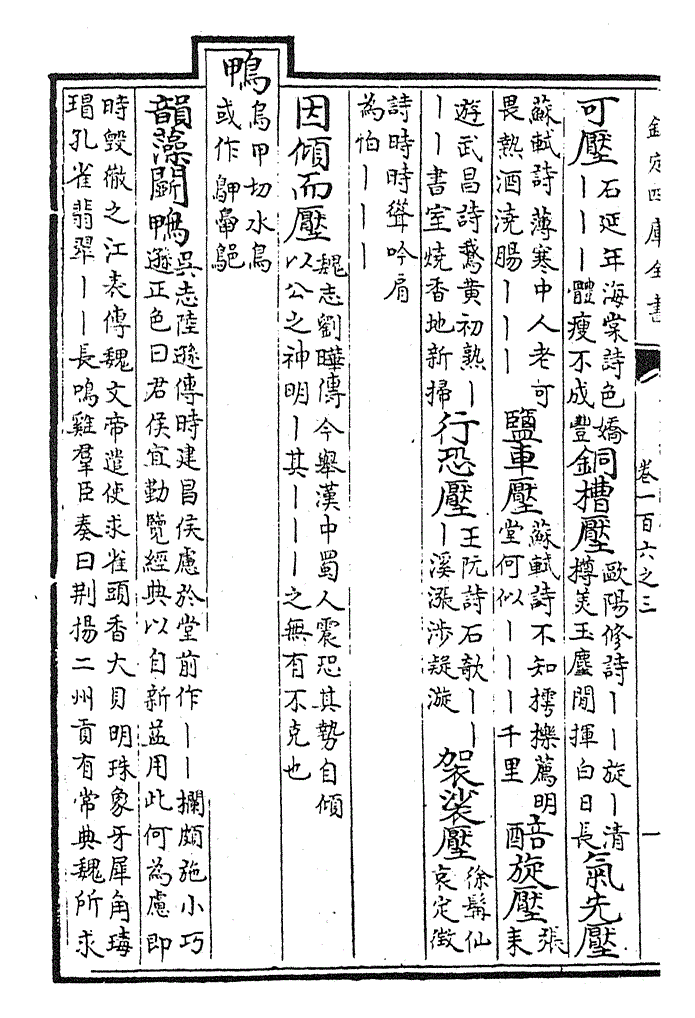 欽定四庫全書
卷一百六之三
一
可壓
石延年海棠詩色嬌
丨丨丨體瘦不成豐
銅槽壓
歐陽修詩丨丨旋丨清
樽美玉麈閒揮白日長
氣先壓
蘇軾詩薄寒中人老可
畏熱酒澆腸丨丨丨
鹽車壓
蘇軾詩不知樗櫟薦明
堂何似丨丨丨千里
醅旋壓
張耒
遊武昌詩鵝黃初熟丨
丨丨書室燒香地新掃
行恐壓
王阮詩石欹丨丨
丨溪漲涉疑漩
袈裟壓
徐髯仙
哀定徵
詩時時聳吟肩
為怕丨丨丨
因傾而壓
魏志劉曄傳今舉漢中蜀人震恐其勢自傾
以公之神明丨其丨丨丨之無有不克也
鴨
烏甲切水鳥
或作
韻藻鬭鴨
吳志陸遜傳時建昌侯慮於堂前作丨丨欄頗施小巧
遜正色曰君侯宜勤覽經典以自新益用此何為慮即
時毀徹之江表傳魏文帝遣使求雀頭香大貝明珠象牙犀角瑇
瑁孔雀翡翠丨丨長鳴雞羣臣奏曰荆揚二州貢有常典魏所求